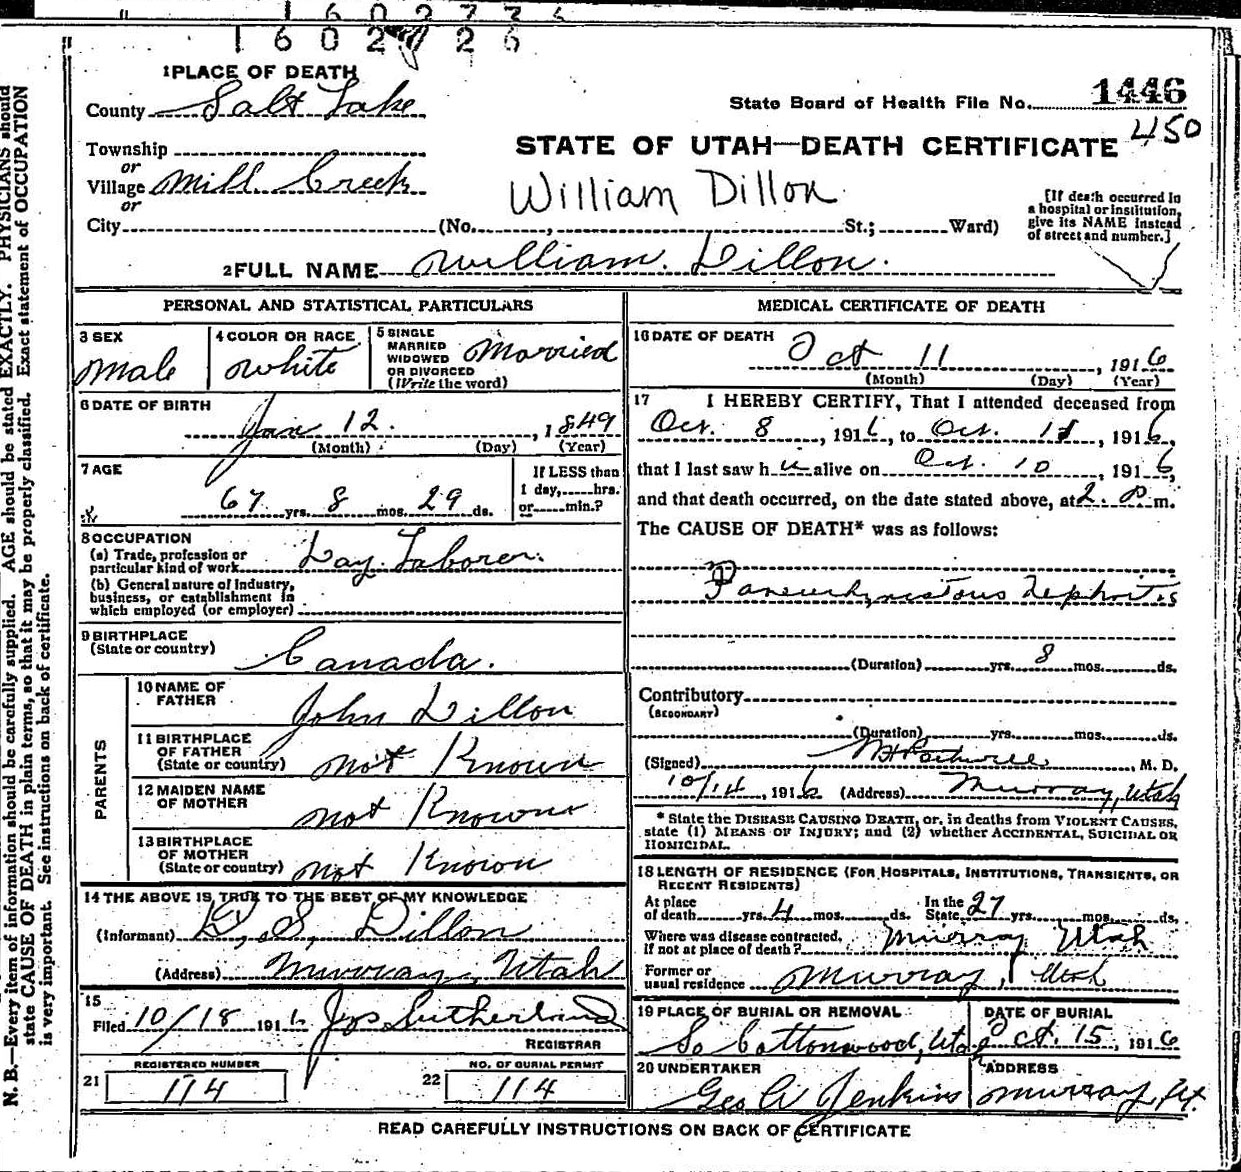 1602726
1 PLACE OF DEATH
County Salt Lake
State Board of Health File No. 1446
450
Township
or
Village Mill Creek
or
City (No. , St.; Ward)
STATE OF UTAH—DEATH CERTIFICATE
William Dillon
[If death occurred in a hospital or institution, give its NAME instead of street and number.]
2 FULL NAME William Dillon.
PERSONAL AND STATISTICAL PARTICULARS
3 SEX
Male
4 COLOR OR RACE
White
5 SINGLE
MARRIED
WIDOWED
OR DIVORCED
(Write the word)
Married
6 DATE OF BIRTH
Jan 12. , 1849
(Month) (Day) (Year)
7 AGE
67 yrs. 8 mos. 29 ds.
If LESS than
1 day,.....hrs.
or.....min.?
8 OCCUPATION
(a) Trade, profession or
particular kind of work Day Laborer.
(b) General nature of Industry,
business, or establishment in
which employed (or employer)
9 BIRTHPLACE
(State or country)
Canada.
PARENTS
10 NAME OF
FATHER
John Dillon
11 BIRTHPLACE
OF FATHER
(State or country) Not Known
12 MAIDEN NAME
OF MOTHER
Not Known
13 BIRTHPLACE
OF MOTHER
(State or country) Not Known
14 THE ABOVE IS TRUE TO THE BEST OF MY KNOWLEDGE
(Informant) D. S. Dillon
(Address) Murray, Utah
15
Filed 10/18 1916 Jas Sutherland
REGISTRAR
REGISTERED NUMBER
21 114
NO. OF BURIAL PERMIT
22 114
MEDICAL CERTIFICATE OF DEATH
16 DATE OF DEATH
Oct 11 , 1916
(Month) (Day) (Year)
17 I HEREBY CERTIFY, That I attended deceased from
Oct. 8 , 1916, to Oct. 11 , 1916,
that I last saw him alive on Oct. 10 , 1916,
and that death occurred, on the date stated above, at 2. P. m.
The CAUSE OF DEATH* was as follows:
Nephritis
(Duration) yrs. 8 mos. ds.
Contributory
(SECONDARY)
(Duration) yrs. mos. ds.
(Signed) , M. D.
10/14 , 1916 (Address) Murray, Utah
* State the DISEASE CAUSING DEATH, or, in deaths from VIOLENT CAUSES,
state (1) MEANS OF INJURY; and (2) whether ACCIDENTAL, SUICIDAL OR
HOMICIDAL.
18 LENGTH OF RESIDENCE (FOR HOSPITALS, INSTITUTIONS, TRANSIENTS, OR
RECENT RESIDENTS)
At place
of death yrs. 4 mos. ds. In the State 27 yrs. mos. ds.
Where was disease contracted,
If not at place of death? Murray Utah
Former or
usual residence Murray, Utah
19 PLACE OF BURIAL OR REMOVAL
So Cottonwood, Utah
DATE OF BURIAL
Oct. 15, 1916
20 UNDERTAKER
Geo A Jenkins
ADDRESS
Murray, Ut.
READ CAREFULLY INSTRUCTIONS ON BACK OF CERTIFICATE
N. B.—Every item of information should be carefully supplied. AGE should be stated EXACTLY. PHYSICIANS should
state CAUSE OF DEATH in plain terms, so that it may be properly classified. Exact statement of OCCUPATION
is very important. See instructions on back of certificate.